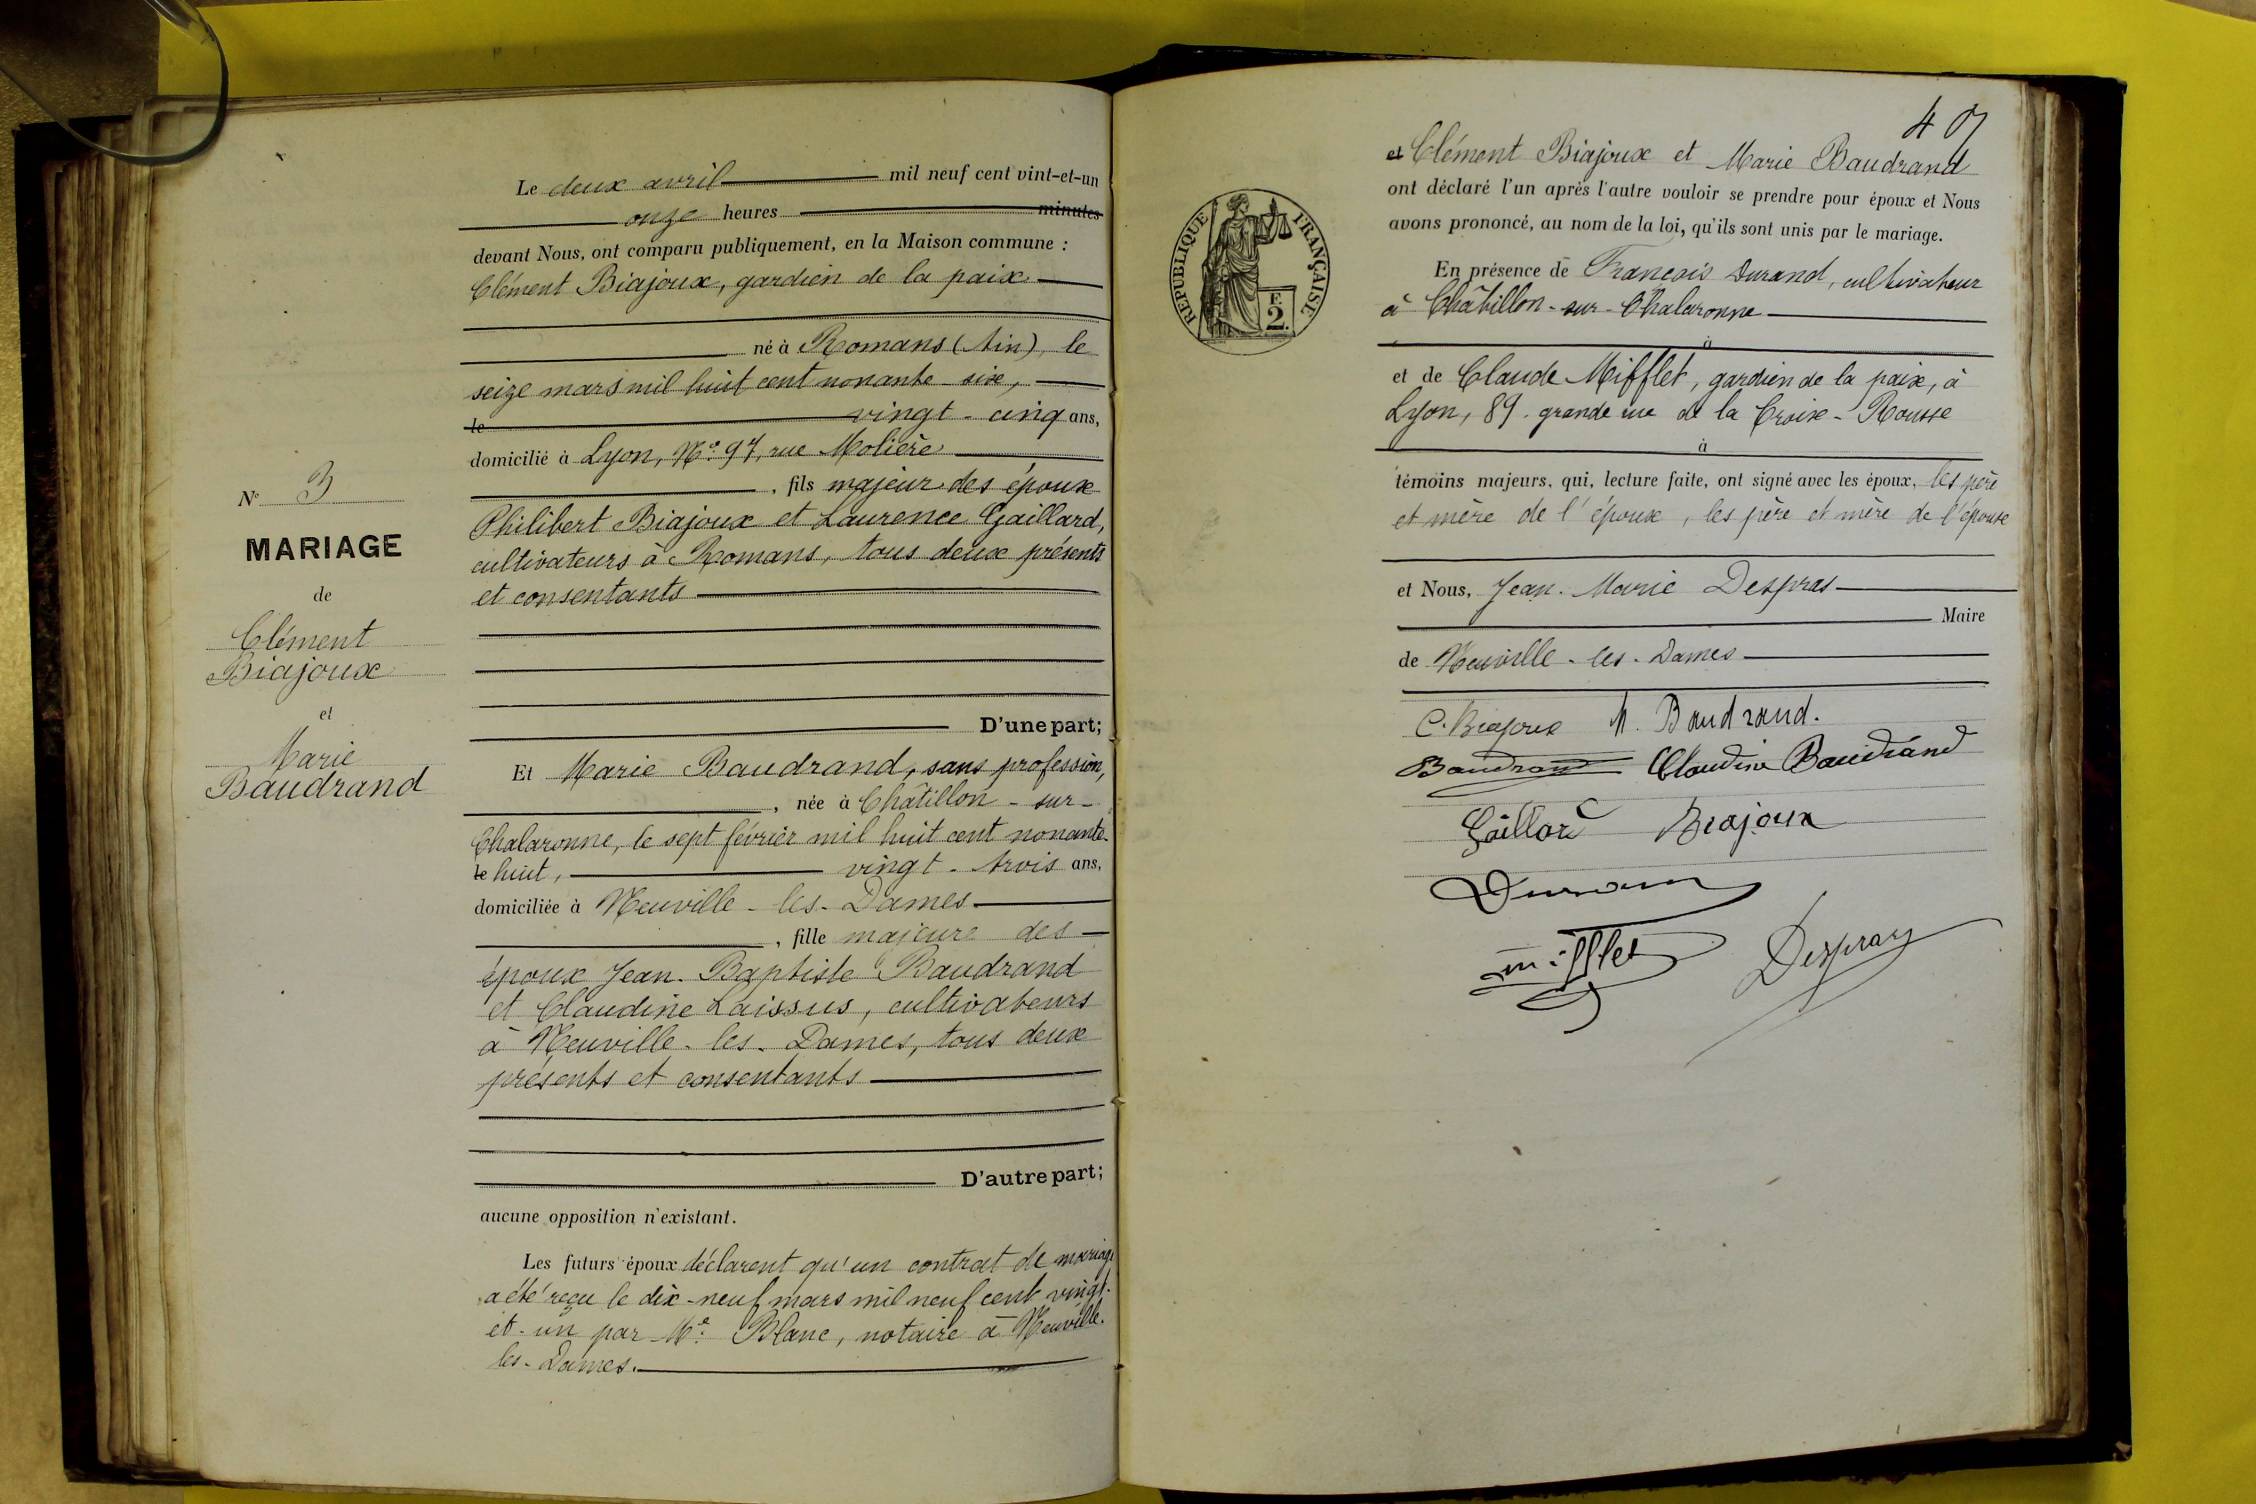 Le deux avril mil neuf cent vint-et-un
onze heures minutes
devant Nous, ont comparu publiquement, en la Maison commune :
Clément Biajoux, gardien de la paix
né à Romans (Ain), le
seize mars mil huit cent nonante six,
le vingt-cinq ans,
domicilié à Lyon, No 97, rue Molière
, fils majeur des époux
Philibert Biajoux et Laurence Gaillard,
cultivateurs à Romans, tous deux présents
et consentants
D'une part;
No 3
MARIAGE
de
Clément
Biajoux
et
Marie
Baudrand
Et Marie Baudrand, sans profession,
, née à Châtillon-sur-
Chalaronne, le sept février mil huit cent nonante-
le huit, vingt-trois ans,
domiciliée à Neuville-les-Dames
, fille majeure des
époux Jean-Baptiste Baudrand
et Claudine Laissus, cultivateurs
à Neuville-les-Dames, tous deux
présents et consentants
D'autre part;
aucune opposition n'existant.
Les futurs époux déclarent qu'un contrat de mariage
a été reçu le dix-neuf mars mil neuf cent vingt-
et-un par Me Blanc, notaire à Neuville-
les-Dames.
RÉPUBLIQUE FRANÇAISE
F.
2.
et Clément Biajoux et Marie Baudrand
ont déclaré l'un après l'autre vouloir se prendre pour époux et Nous
avons prononcé, au nom de la loi, qu'ils sont unis par le mariage.
En présence de François Durand, cultivateur
à Châtillon-sur-Chalaronne
à
et de Claude Mifflet, gardien de la paix, à
Lyon, 89 grande rue de la Croix-Rousse
à
témoins majeurs, qui, lecture faite, ont signé avec les époux, les père
et mère de l'époux, les père et mère de l'épouse
et Nous, Jean-Marie Despras
Maire
de Neuville-les-Dames
C. Biajoux M. Baudrand.
Baudrand Claudine Baudrand
Gaillard Biajoux
Durand
mifflet Despras